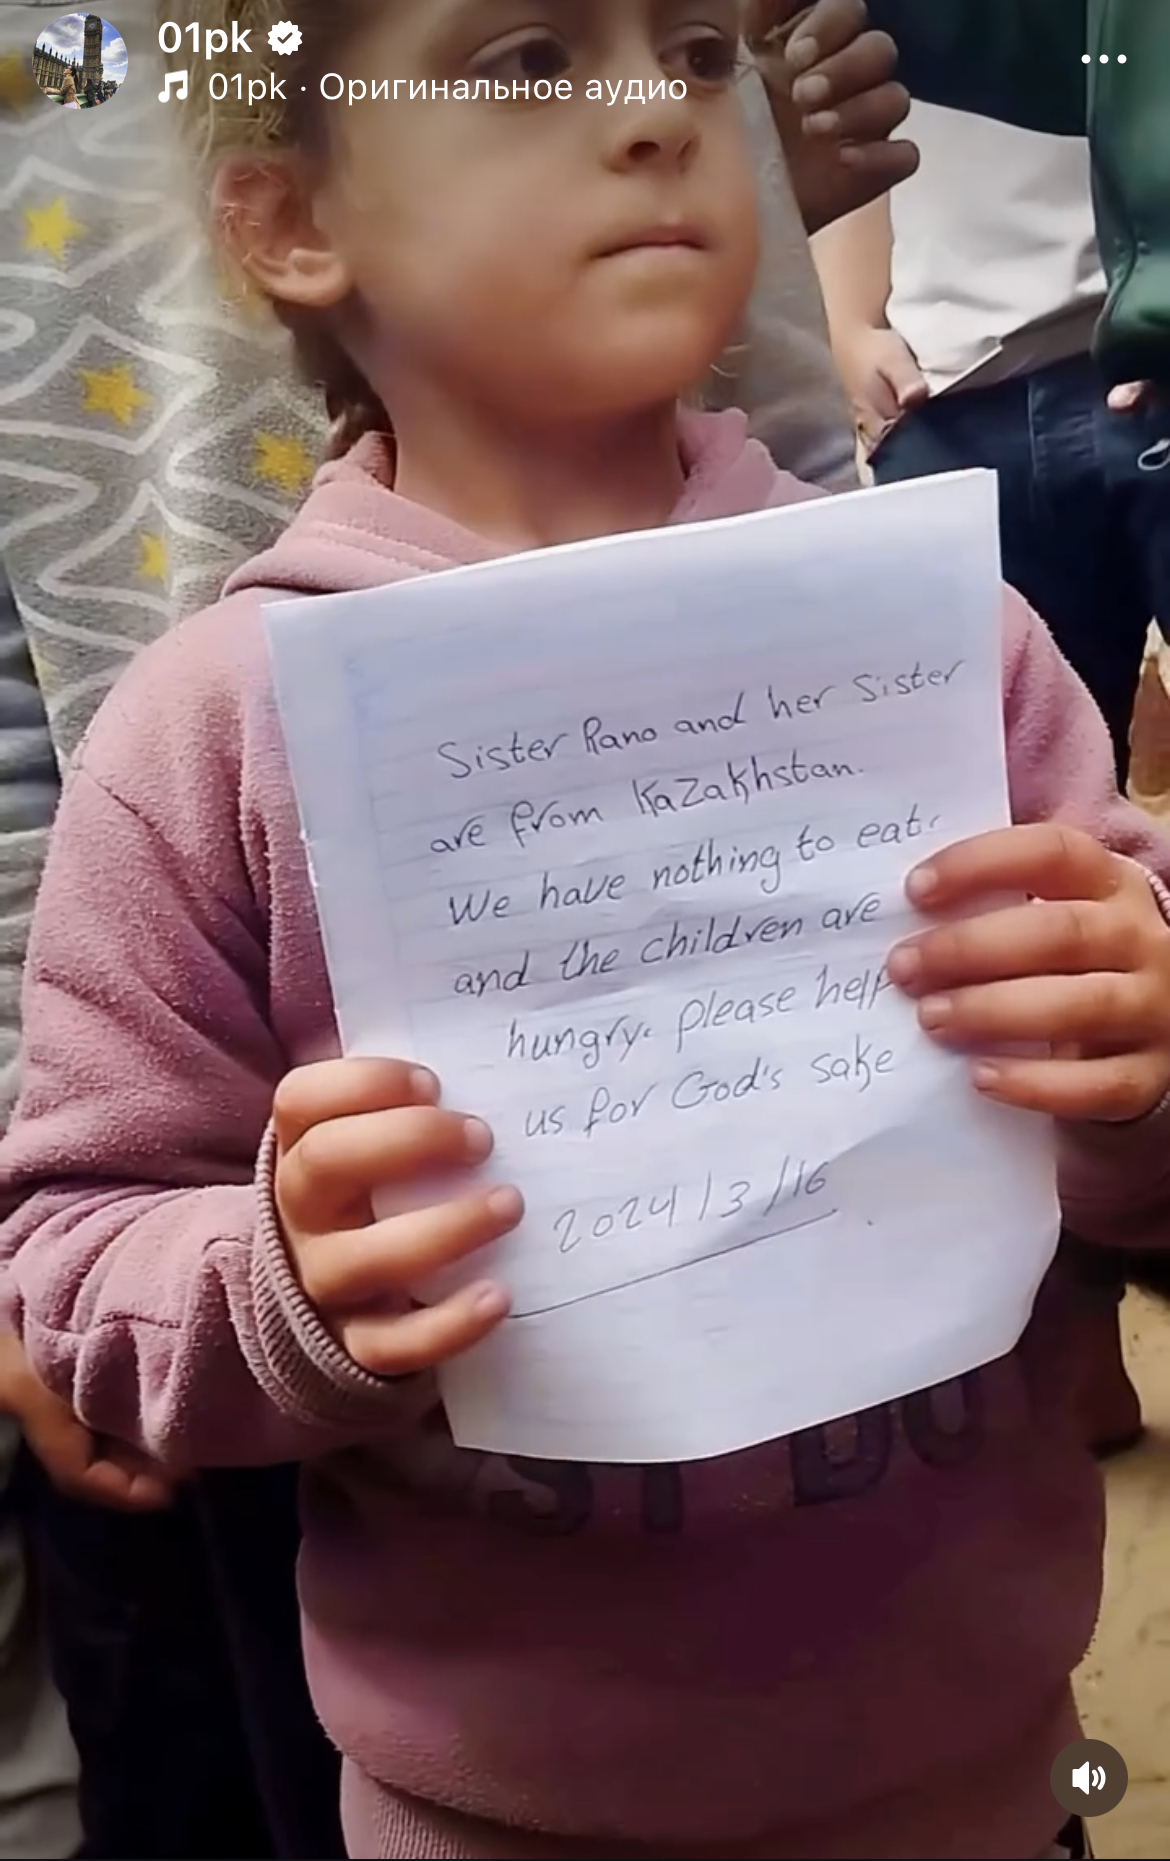 01pk
01pk · Оригинальное аудио
Sister Rano and her Sister
are from Kazakhstan.
We have nothing to eat.
and the children are
hungry. please help
us for God's sake
2024/3/16
ST DO